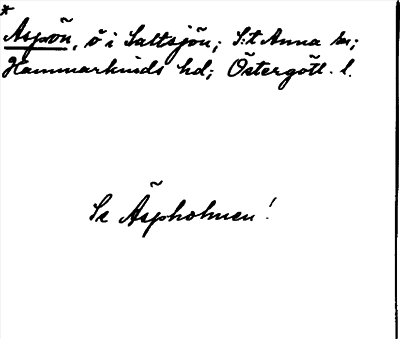 *
Aspön, ö i Saltsjön; S:t Anna sn;
Hammarkinds hd; Östergötl. l.
Se Äspholmen!